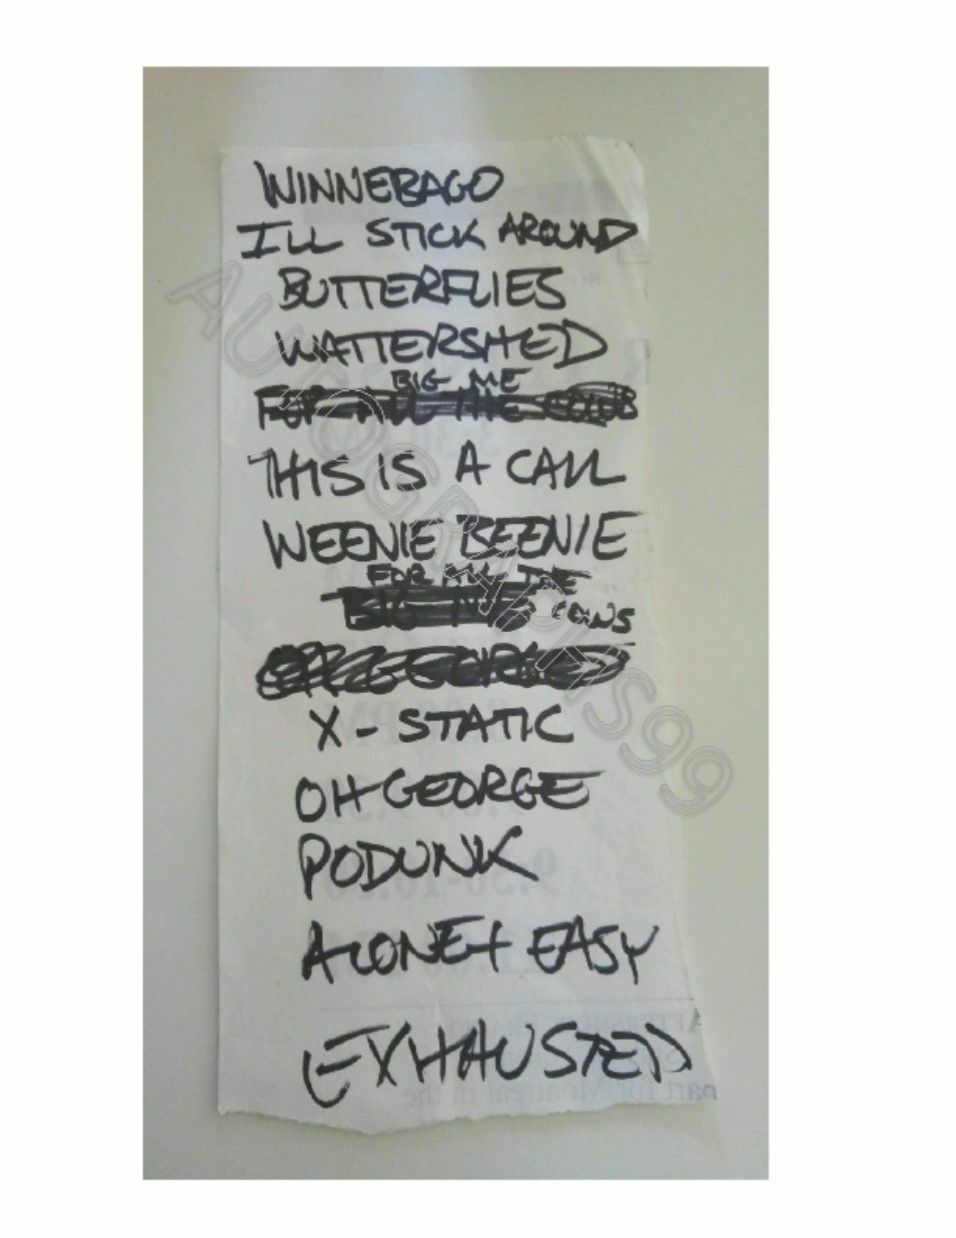 WINNEBAGO
ILL STICK AROUND
BUTTERFLIES
WATTERSHED
BIG ME
FOR ALL THE COWS
THIS IS A CALL
WEENIE BEENIE
FOR ALL THE
BIG ME COWS
OH GEORGE
X-STATIC
OH GEORGE
PODUNK
ALONE+EASY
EXHAUSTED
AUTOGRAPHS99